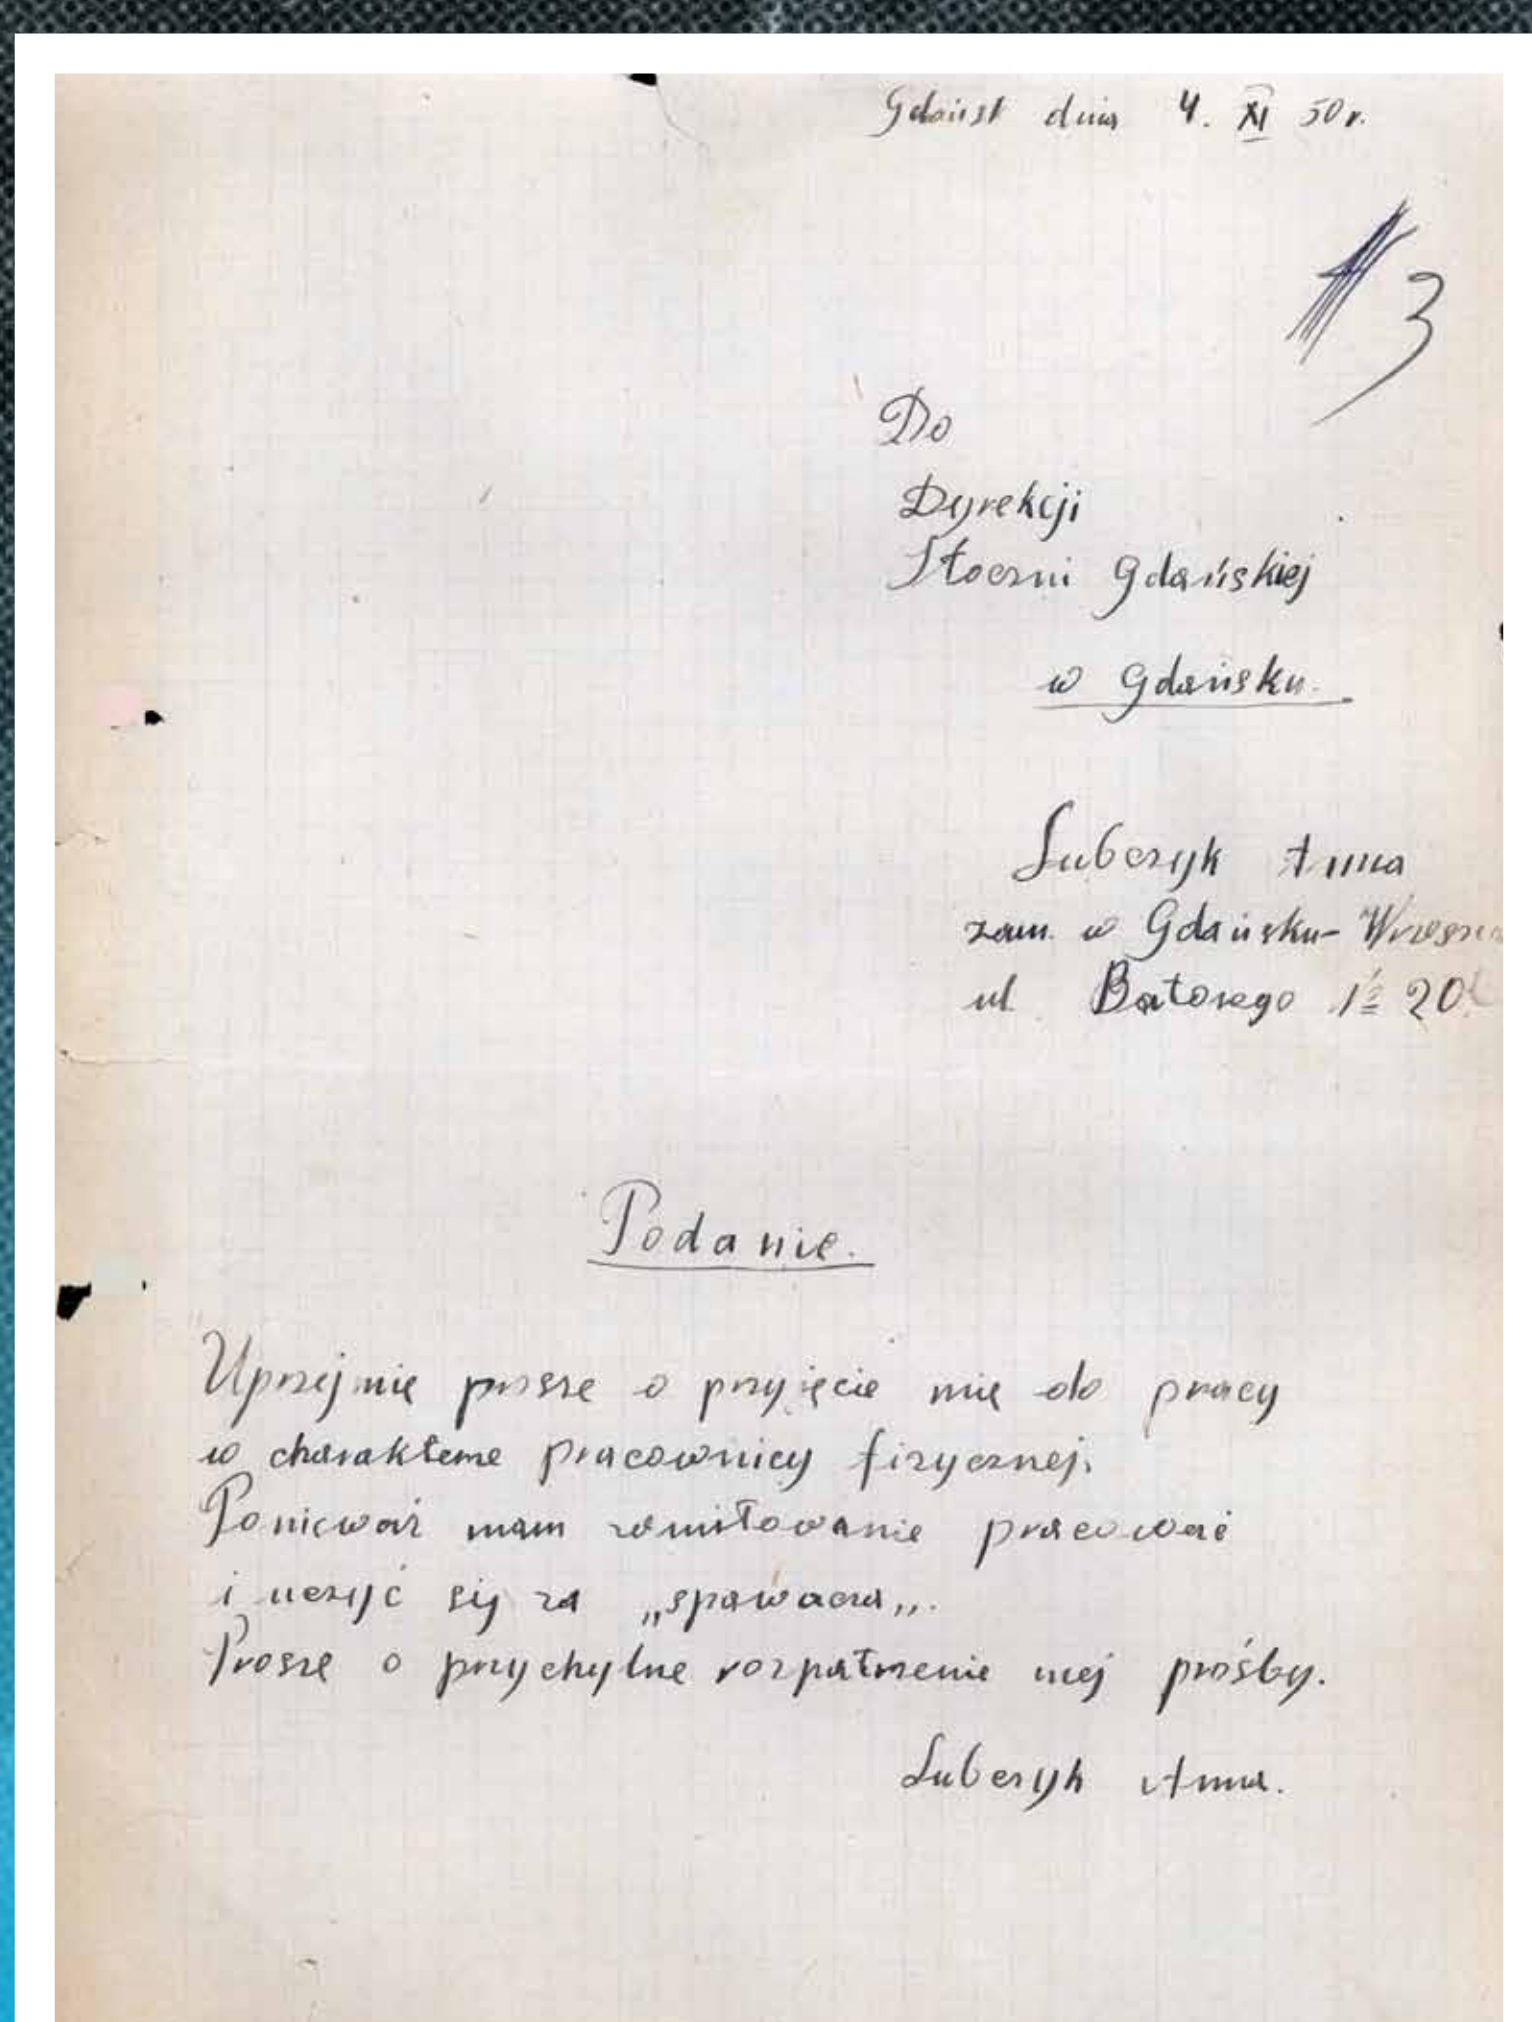 Gdańsk dnia 4. XI 50 r.
3
Do
Dyrekcji
Stoczni Gdańskiej
w Gdańsku.
Lubczyk Anna
zam. w Gdańsku-
ul. Batorego 20
Podanie.
Uprzejmię proszę o przyjęcie mię do pracy
w charakterze pracownicy fizycznej.
Ponieważ mam zamiłowanie pracować
i uczyć się za „spawacza„.
Proszę o przychylne rozpatrzenie mej prośby.
Lubczyk Anna.